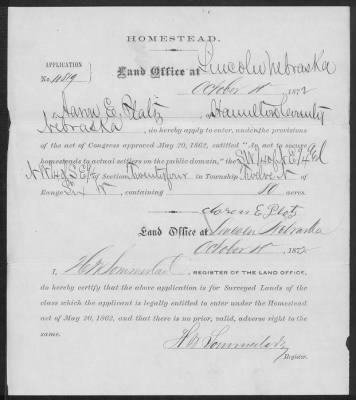 HOMESTEAD.
APPLICATION
No.
Land Office at Lincoln Nebraska
October 1872
Aaron E. Hamilton County
Nebraska, do hereby apply to enter, under the provisions
of the act of Congress approved May 20, 1862, entitled "An act to secure
homesteads to actual settlers on the public domain," the
of Section Twenty four in Township Twelve N of
Range Six W, containing 80 acres.
Aaron E.
Land Office at Lincoln Nebraska
October 1872
I, REGISTER OF THE LAND OFFICE,
do hereby certify that the above application is for Surveyed Lands of the
class which the applicant is legally entitled to enter under the Homestead
act of May 20, 1862, and that there is no prior, valid, adverse right to the
same.
Register.